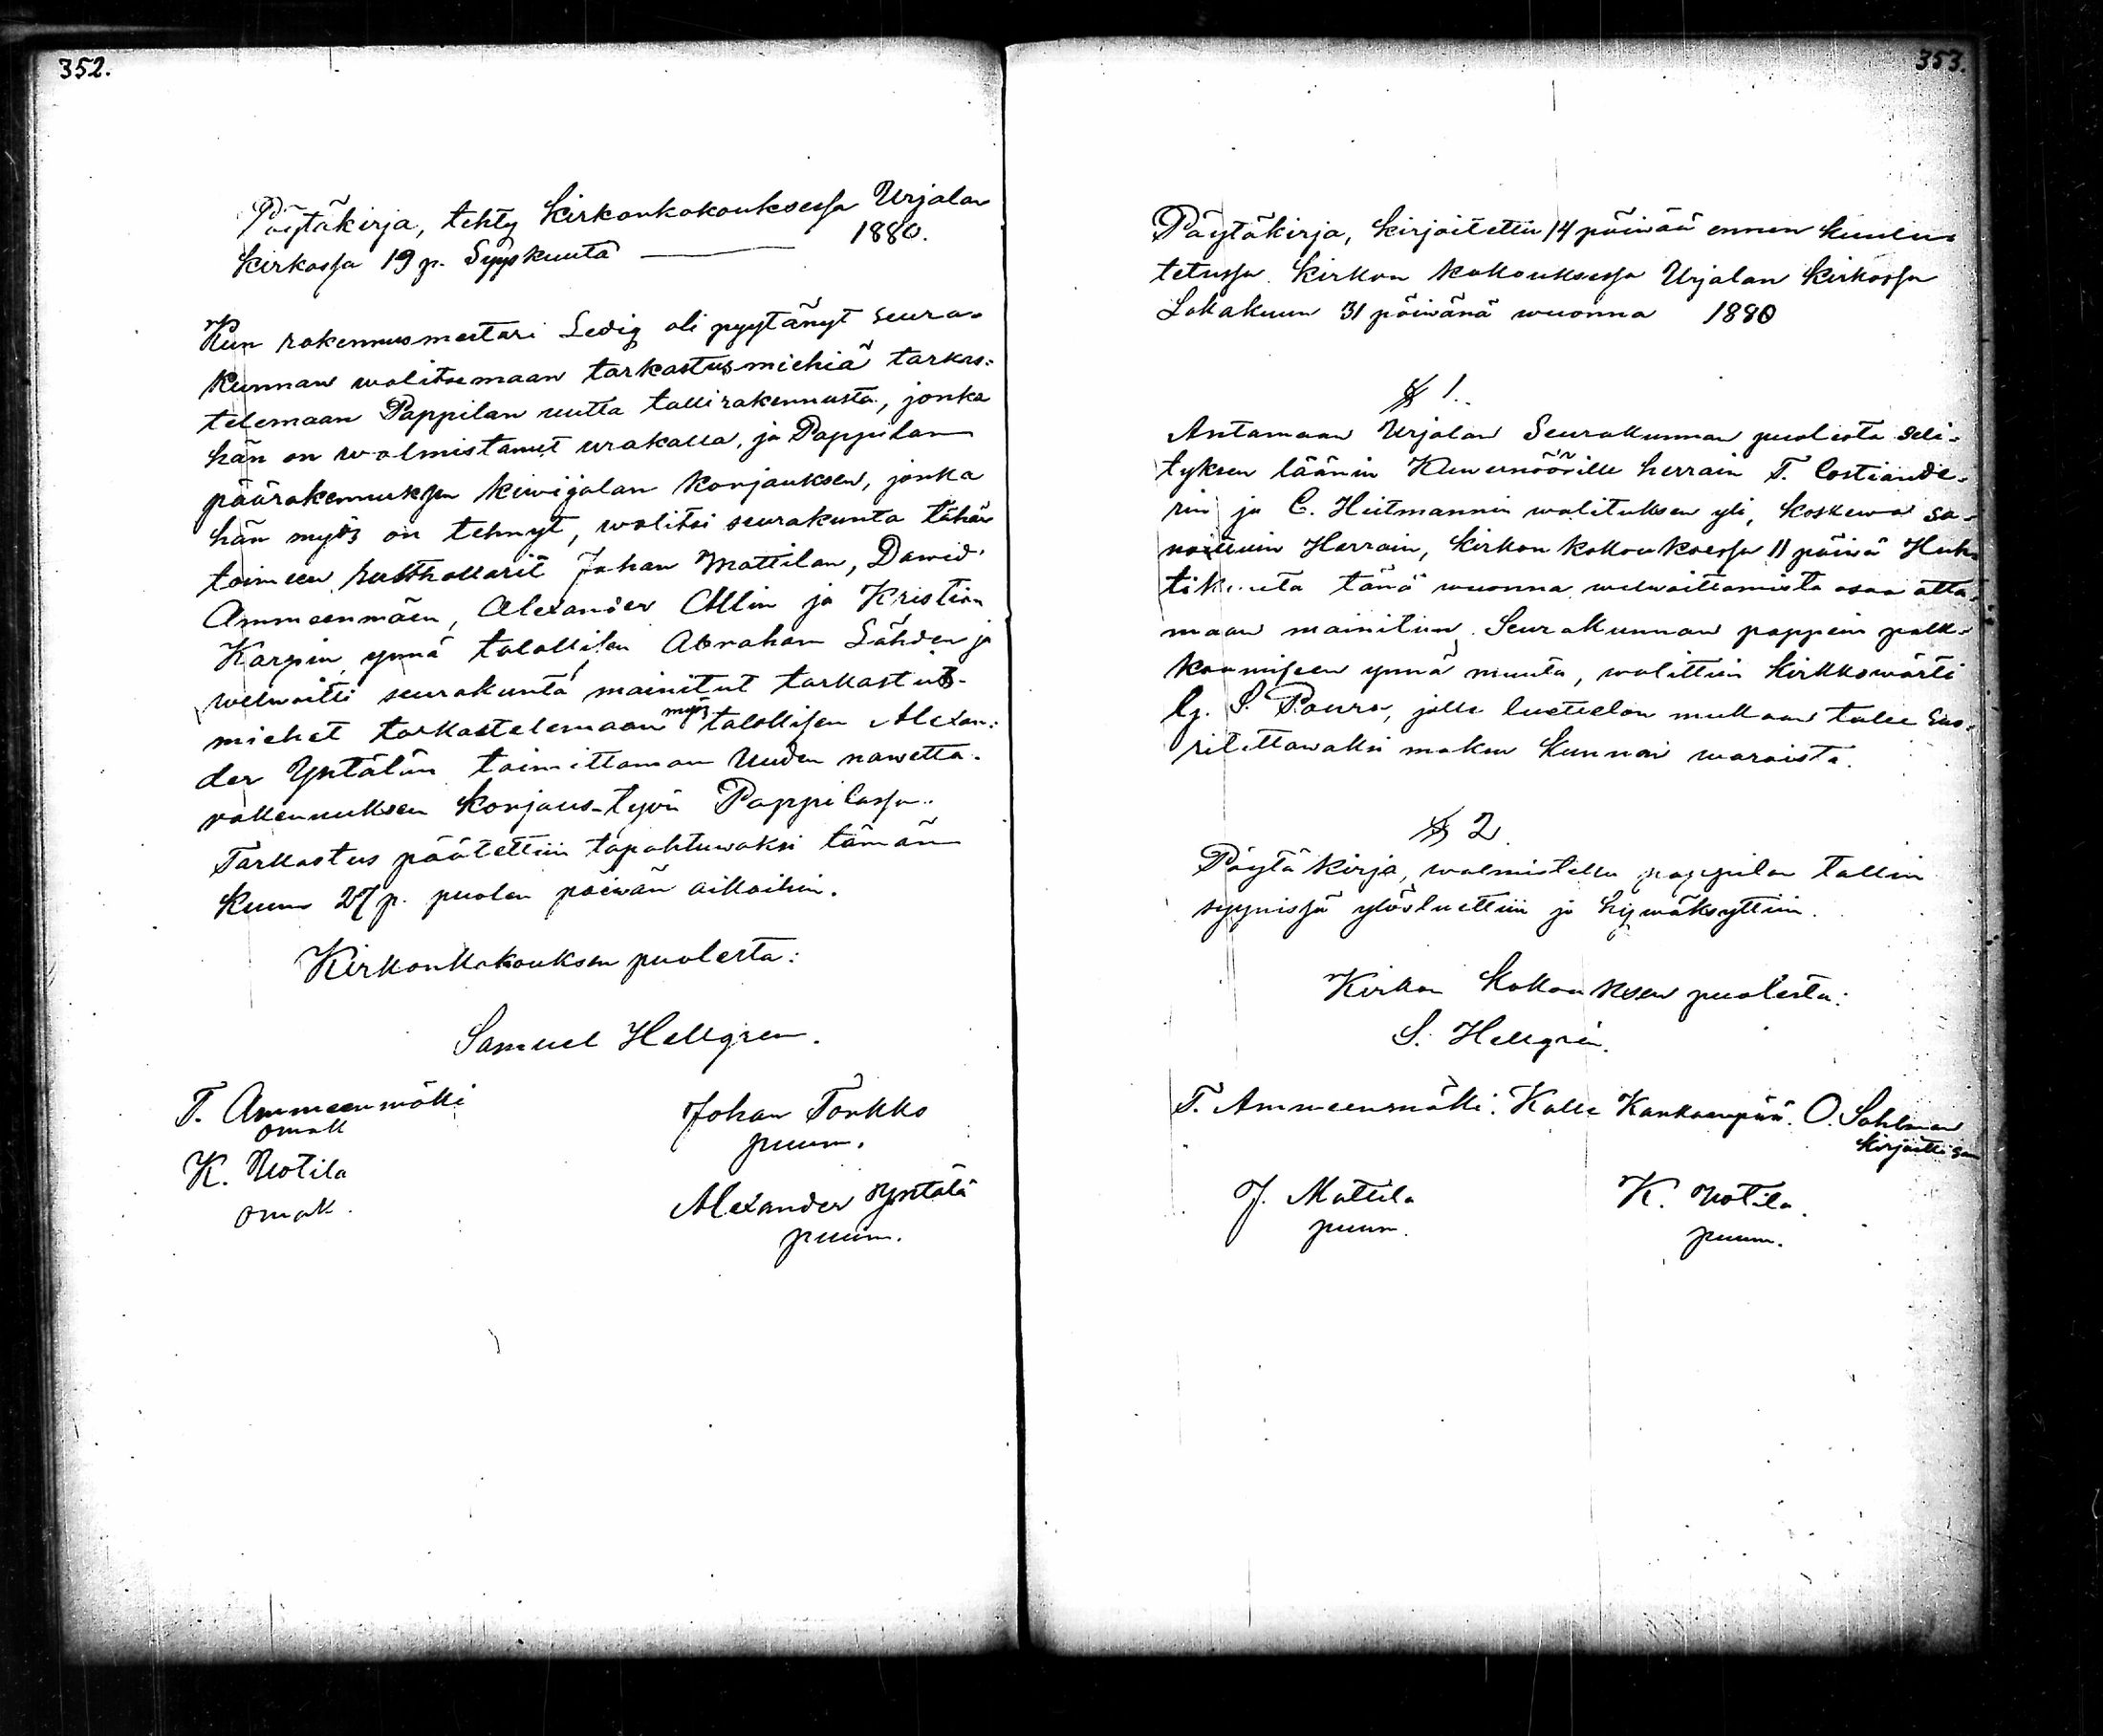 352.
Pöytäkirja, tehty Kirkonkokouksessa Urjalan
Kirkossa 19 p. Syyskuuta — 1880.
Kun rakennusmestari Ledig oli pyytänyt seura-
kunnan walitsemaan tarkastusmiehiä tarkas-
telemaan Pappilan uutta tallirakennusta, jonka
hän on walmistanut urakalla, ja Pappilan
päärakennuksen kiwijalan korjauksen, jonka
hän myös on tehnyt, walitsi seurakunta tähän
toimeen rusthollarit Johan Mattilan, Dawid
Ammeenmäen, Alexander Allin ja Kristian
Karpin ynnä talollisen Abraham Lähden ja
welwoitti seurakunta mainitut tarkastus-
miehet tarkastelemaan myös talollisen Alexan-
der Yntälän toimittaman Uuden nawetta-
rakennuksen korjaus-työn Pappilassa.
Tarkastus päätettiin tapahtuwaksi tämän
kuun 27 p. puolen päiwän aikoihin.
Kirkonkokouksen puolesta:
Samuel Hellgren.
T. Ammeenmäki
omak
Johan Torkko
puum.
K. Notila
omak.
Alexander Yntälä
puum.
353.
Pöytäkirja, kirjoitettiin 14 päiwää ennen kuulu-
tetussa Kirkon kokouksessa Urjalan Kirkossa
Lokakuun 31 päiwänä wuonna 1880
§ 1.
Antamaan Urjalan Seurakunnan puolesta seli-
tyksen läänin Kuwernöörille herrain F. Costiande-
rin ja C. Heitmannin walituksen yli, koskewa sa-
nottuin Herrain, Kirkon kokouksessa 11 päiwä Huh-
tikuuta tänä wuonna welwoittamista osaa otta-
maan mainitun Seurakunnan pappein palk-
kaamiseen ynnä muuta, walittiin Kirkkowärti
G. S. Pouru, jolle luettelon mukaan tulee suo-
ritettawaksi maksu kunnan waroista.
§ 2.
Pöytäkirja, walmistettu pappilan tallin
syynissä ylösluettiin ja hywäksyttiin.
Kirkon Kokouksen puolesta:
S. Hellgrén.
T. Ammeenmäki. Kalle Kankaanpää. O. Sahlman
kirjoitti
J. Mattila
puum.
K. Notila.
puum.